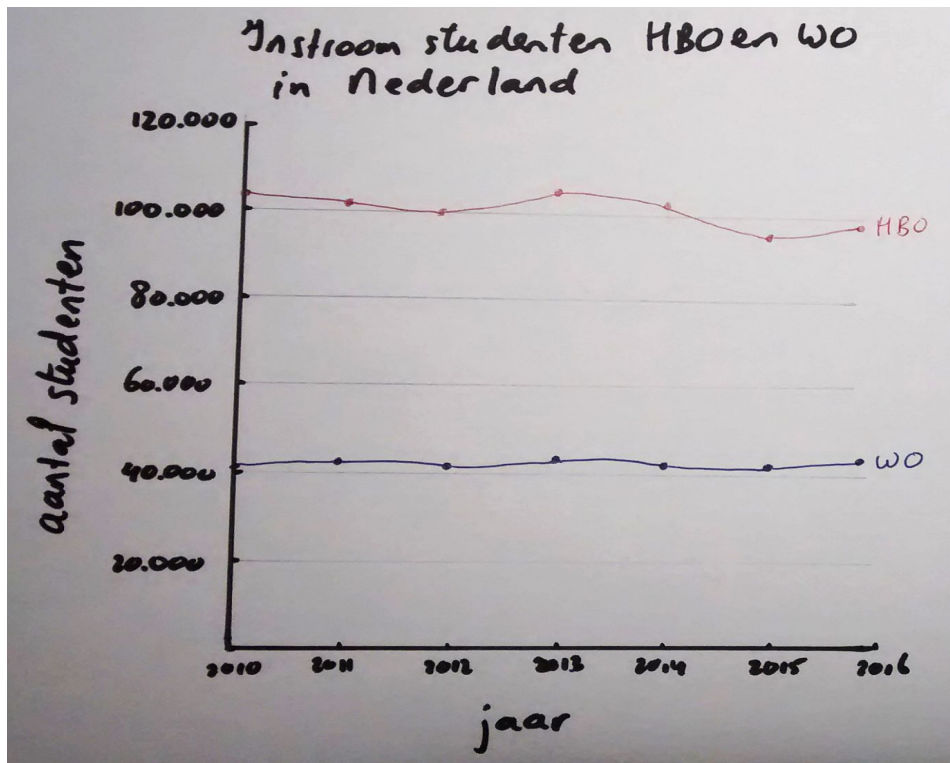 Instroom studenten HBO en WO
in Nederland
120.000
100.000
80.000
60.000
40.000
20.000
aantal studenten
HBO
WO
2010 2011 2012 2013 2014 2015 2016
jaar